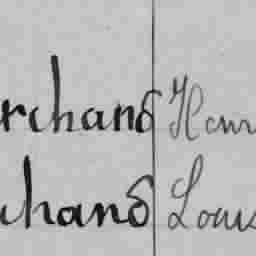 rchand Henr
chand Louis